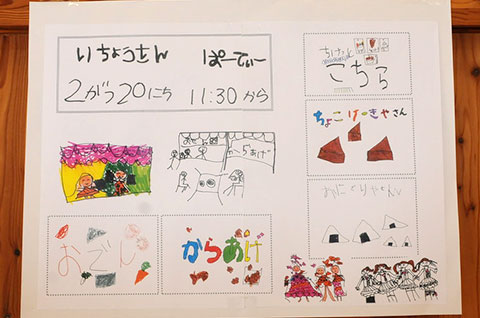 いちょうさん ぱーてぃー
2がつ20にち 11:30から
ちけっと
こちら
ちょこけーきやさん
からあげ
おにぎりやさん
おでん
からあげ